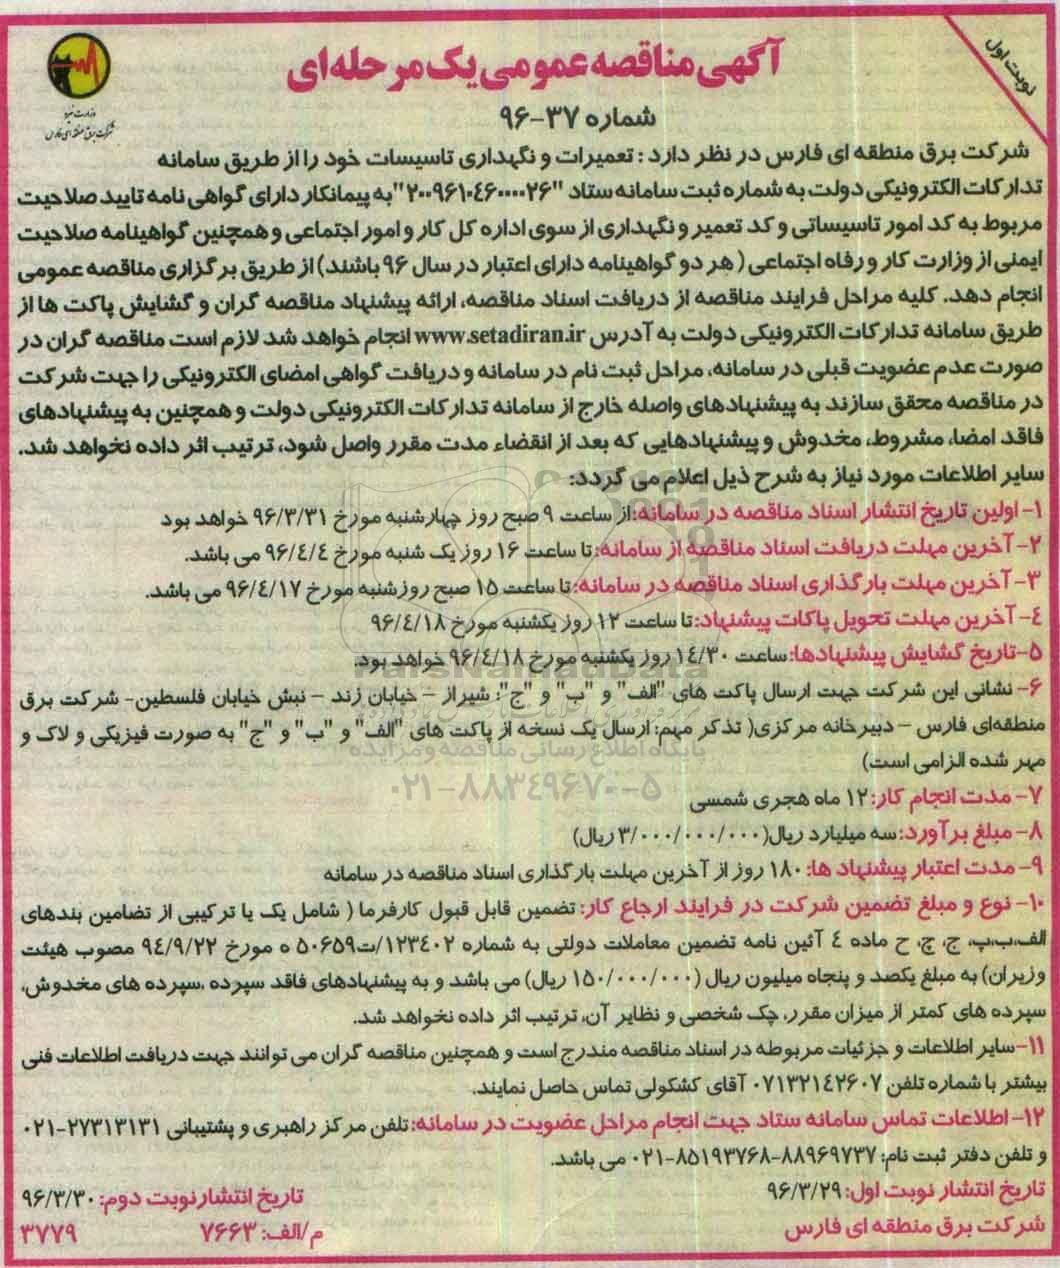 نوبت اول
وزارت نیرو
شرکت برق منطقه ای فارس
آگهی مناقصه عمومی یک مرحله ای
شماره ۳۷-۹۶
شرکت برق منطقه ای فارس در نظر دارد : تعمیرات و نگهداری تاسیسات خود را از طریق سامانه
تدارکات الکترونیکی دولت به شماره ثبت سامانه ستاد "۲۰۰۹۶۱۰۴۶۰۰۰۰۲۶" به پیمانکار دارای گواهی نامه تایید صلاحیت
مربوط به کد امور تاسیساتی و کد تعمیر و نگهداری از سوی اداره کل کار و امور اجتماعی و همچنین گواهینامه صلاحیت
ایمنی از وزارت کار و رفاه اجتماعی ( هر دو گواهینامه دارای اعتبار در سال ۹۶ باشند) از طریق برگزاری مناقصه عمومی
انجام دهد. کلیه مراحل فرایند مناقصه از دریافت اسناد مناقصه، ارائه پیشنهاد مناقصه گران و گشایش پاکت ها از
طریق سامانه تدارکات الکترونیکی دولت به آدرس www.setadiran.ir انجام خواهد شد لازم است مناقصه گران در
صورت عدم عضویت قبلی در سامانه، مراحل ثبت نام در سامانه و دریافت گواهی امضای الکترونیکی را جهت شرکت
در مناقصه محقق سازند به پیشنهادهای واصله خارج از سامانه تدارکات الکترونیکی دولت و همچنین به پیشنهادهای
فاقد امضا، مشروط، مخدوش و پیشنهادهایی که بعد از انقضاء مدت مقرر واصل شود، ترتیب اثر داده نخواهد شد.
سایر اطلاعات مورد نیاز به شرح ذیل اعلام می گردد:
۱- اولین تاریخ انتشار اسناد مناقصه در سامانه: از ساعت ۹ صبح روز چهارشنبه مورخ ۹۶/۳/۳۱ خواهد بود
۲- آخرین مهلت دریافت اسناد مناقصه از سامانه: تا ساعت ۱۶ روز یک شنبه مورخ ۹۶/۴/۴ می باشد.
۳- آخرین مهلت بارگذاری اسناد مناقصه در سامانه: تا ساعت ۱۵ صبح روز شنبه مورخ ۹۶/۴/۱۷ می باشد.
۴- آخرین مهلت تحویل پاکات پیشنهاد: تا ساعت ۱۲ روز یکشنبه مورخ ۹۶/۴/۱۸
۵- تاریخ گشایش پیشنهادها: ساعت ۱۴/۳۰ روز یکشنبه مورخ ۹۶/۴/۱۸ خواهد بود.
ParsNamadData
۶- نشانی این شرکت جهت ارسال پاکت های "الف" و "ب" و "ج": شیراز – خیابان زند – نبش خیابان فلسطین- شرکت برق
منطقه‌ای فارس – دبیرخانه مرکزی( تذکر مهم: ارسال یک نسخه از پاکت های "الف" و "ب" و "ج" به صورت فیزیکی و لاک و
پایگاه اطلاع رسانی مناقصه و مزایده
مهر شده الزامی است)
۰۲۱-۸۸۳۴۹۶۷۰-۵
۷- مدت انجام کار: ۱۲ ماه هجری شمسی
۸- مبلغ برآورد: سه میلیارد ریال(۳/۰۰۰/۰۰۰/۰۰۰ ریال)
۹- مدت اعتبار پیشنهاد ها: ۱۸۰ روز از آخرین مهلت بارگذاری اسناد مناقصه در سامانه
۱۰- نوع و مبلغ تضمین شرکت در فرایند ارجاع کار: تضمین قابل قبول کارفرما ( شامل یک یا ترکیبی از تضامین بندهای
الف،ب،پ، ج، چ، ح ماده ۴ آئین نامه تضمین معاملات دولتی به شماره ۱۲۳۴۰۲/ت۵۰۶۵۹ ه مورخ ۹۴/۹/۲۲ مصوب هیئت
وزیران) به مبلغ یکصد و پنجاه میلیون ریال (۱۵۰/۰۰۰/۰۰۰ ریال) می باشد و به پیشنهادهای فاقد سپرده ،سپرده های مخدوش،
سپرده های کمتر از میزان مقرر، چک شخصی و نظایر آن، ترتیب اثر داده نخواهد شد.
۱۱-سایر اطلاعات و جزئیات مربوطه در اسناد مناقصه مندرج است و همچنین مناقصه گران می توانند جهت دریافت اطلاعات فنی
بیشتر با شماره تلفن ۰۷۱۳۲۱۴۲۶۰۷ آقای کشکولی تماس حاصل نمایند.
۱۲- اطلاعات تماس سامانه ستاد جهت انجام مراحل عضویت در سامانه: تلفن مرکز راهبری و پشتیبانی ۲۷۳۱۳۱۳۱-۰۲۱
و تلفن دفتر ثبت نام: ۸۸۹۶۹۷۳۷-۸۵۱۹۳۷۶۸-۰۲۱ می باشد.
تاریخ انتشار نوبت اول: ۹۶/۳/۲۹
تاریخ انتشار نوبت دوم: ۹۶/۳/۳۰
شرکت برق منطقه ای فارس
م/الف: ۷۶۶۳
۳۷۷۹